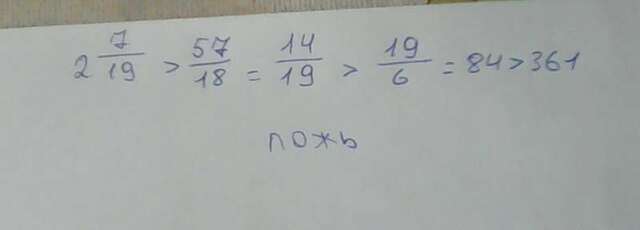 2 7/19 > 57/18 = 14/19 > 19/6 = 84 > 361
ложь